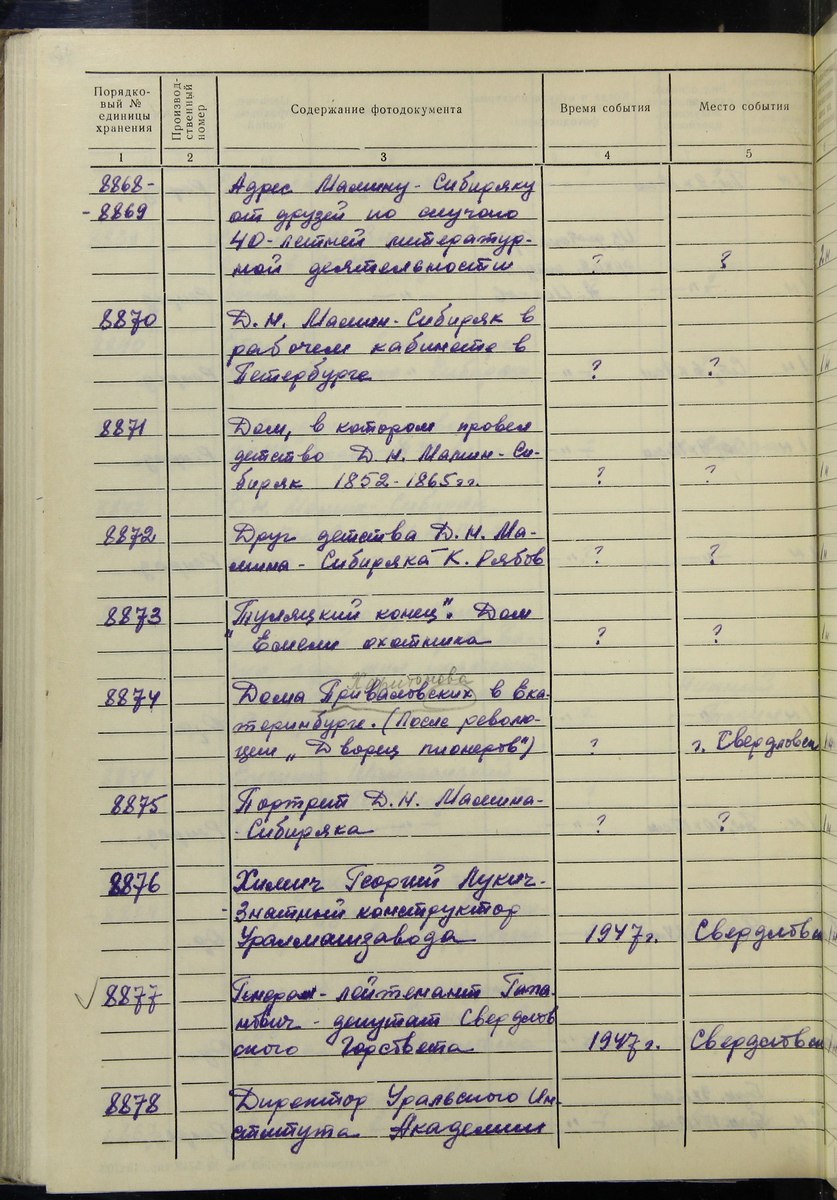 Порядко-
вый №
единицы
хранения
Производ-
ственный
номер
Содержание фотодокумента
Время события
Место события
1
2
3
4
5
8868-
-8869
Адрес Мамину-Сибиряку
от друзей по случаю
40-летней литератур-
ной деятельности ? ?
8870 Д.Н. Мамин-Сибиряк в
рабочем кабинете в
Петербурге ? ?
8871 Дом, в котором провел
детство Д.Н. Мамин-Си-
биряк 1852-1865гг. ? ?
8872 Друг детства Д.Н. Ма-
мина-Сибиряка К. Рябов ? ?
8873 "Туляцкий конец". Дом
"Емели охотника ? ?
Харитонова
8874 Дома Приваловских в Ека-
теринбурге. (После револю-
ции "Дворец пионеров") ? г. Свердловск
8875 Портрет Д.Н. Мамина-
-Сибиряка ? ?
8876 Химич Георгий Лукич-
-Знатный конструктор
Уралмашзавода 1947г. Свердловск
8877 Генерал-лейтенант
- депутат Свердлов
ского Горсовета 1947г. Свердловск
8878 Директор Уральского Ин-
ститута Академии